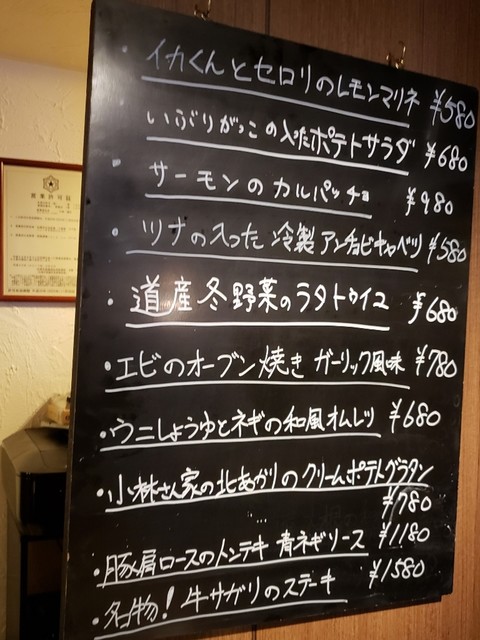 ・イカくんとセロリのレモンマリネ ¥580
いぶりがっこの入ったポテトサラダ ¥680
・サーモンのカルパッチョ ¥980
・ツナの入った冷製アンチョビキャベツ ¥580
・道産冬野菜のラタトゥイユ ¥680
・エビのオーブン焼き ガーリック風味 ¥780
・ウニしょうゆとネギの和風オムレツ ¥680
・小林さん家の北あかりのクリームポテトグラタン
¥780
・豚肩ロースのトンテキ 青ネギソース ¥1180
・名物!牛サガリのステーキ ¥1580